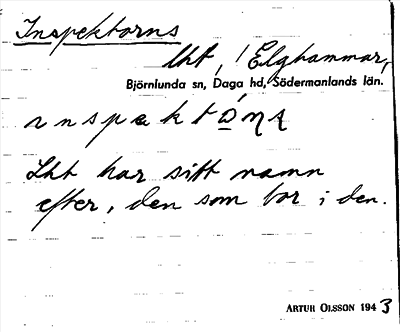 Inspektorns
lht, Elghammar,
Björnlunda sn, Daga hd, Södermanlands län.
Lht har sitt namn
efter, den som bor i den.
ARTUR OLSSON 1943